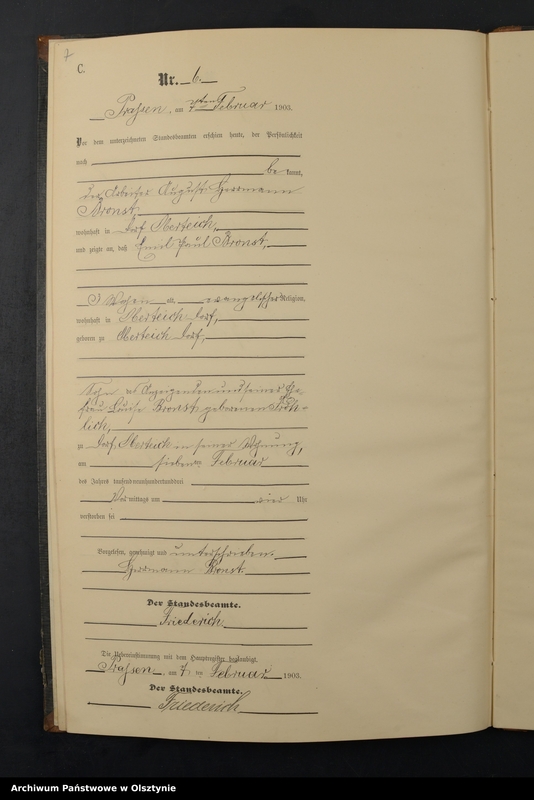 7
C.
Nr. 6.
Prassen, am 7ten Februar 1903.
Vor dem unterzeichneten Standesbeamten erschien heute, der Persönlichkeit
nach
be kannt,
der Arbeiter August Herrmann
Bronst,
wohnhaft in Dorf Oberteich,
und zeigte an, daß Emil Paul Bronst,
Wochen alt, evangelischer Religion,
wohnhaft in Oberteich Dorf,
geboren zu Oberteich Dorf,
Sohn des Anzeigenden und seiner Ehe-
frau Luise Bronst geborenen Fröh-
lich,
zu Dorf Oberteich in seiner Wohnung,
am siebenten Februar
des Jahres tausendneunhundertunddrei
Vor mittags um vier Uhr
verstorben sei
Vorgelesen, genehmigt und unterschrieben.
Herrmann Bronst
Der Standesbeamte.
Friederich
Die Uebereinstimmung mit dem Hauptregister beglaubigt.
Prassen, am 7ten Februar 1903.
Der Standesbeamte.
Friederich
Archiwum Państwowe w Olsztynie